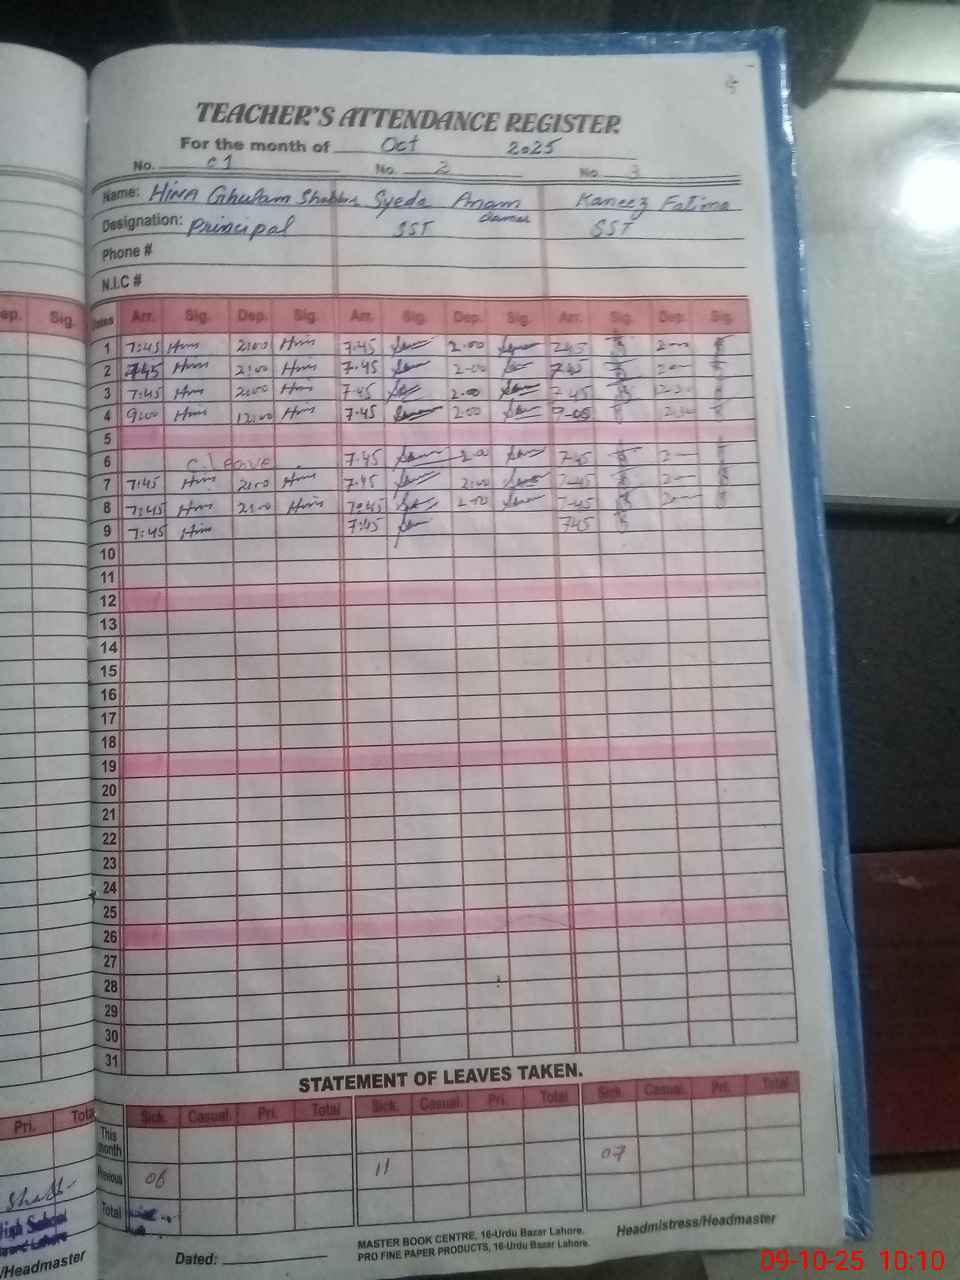 TEACHER'S ATTENDANCE REGISTER
For the month of Oct 2025
No. 01 No. 2 No. 3
Name: HINA Ghulam Shabbir Syeda Anam Kaneez Fatima
Designation: Principal SST SST
Phone #
N.I.C #
ep. Sig. Dates Arr. Sig. Dep. Sig. Arr. Sig. Dep. Sig. Arr. Sig. Dep. Sig.
1 7:45 Hina 2:00 Hina 7.45 2.00 7.45
2 7:45 Hina 2:00 Hina 7.45 2.00 7.45
3 7:45 Hina 2:00 Hina 7.45 2.00 7.45
4 9:00 Hina 12:00 Hina 7.45 2.00
5
6 C. Leave 7.45 2.00 7.45
7 7:45 Hina 2:00 Hina 7.45 2:00 7.45
8 7:45 Hina 2:00 Hina 7:45 2.00 7.45
9 7:45 Hina 7:45 745
10
11
12
13
14
15
16
17
18
19
20
21
22
23
24
25
26
27
28
29
30
31
STATEMENT OF LEAVES TAKEN.
Pri. Total Sick. Casual. Pri. Total Sick. Casual. Pri. Total Sick. Casual. Pri. Total
This month
Previous 06 11 07
Total
High School
Lahore
/Headmaster
Dated:
MASTER BOOK CENTRE, 16-Urdu Bazar Lahore.
PRO FINE PAPER PRODUCTS, 16-Urdu Bazar Lahore.
Headmistress/Headmaster
09-10-25 10:10